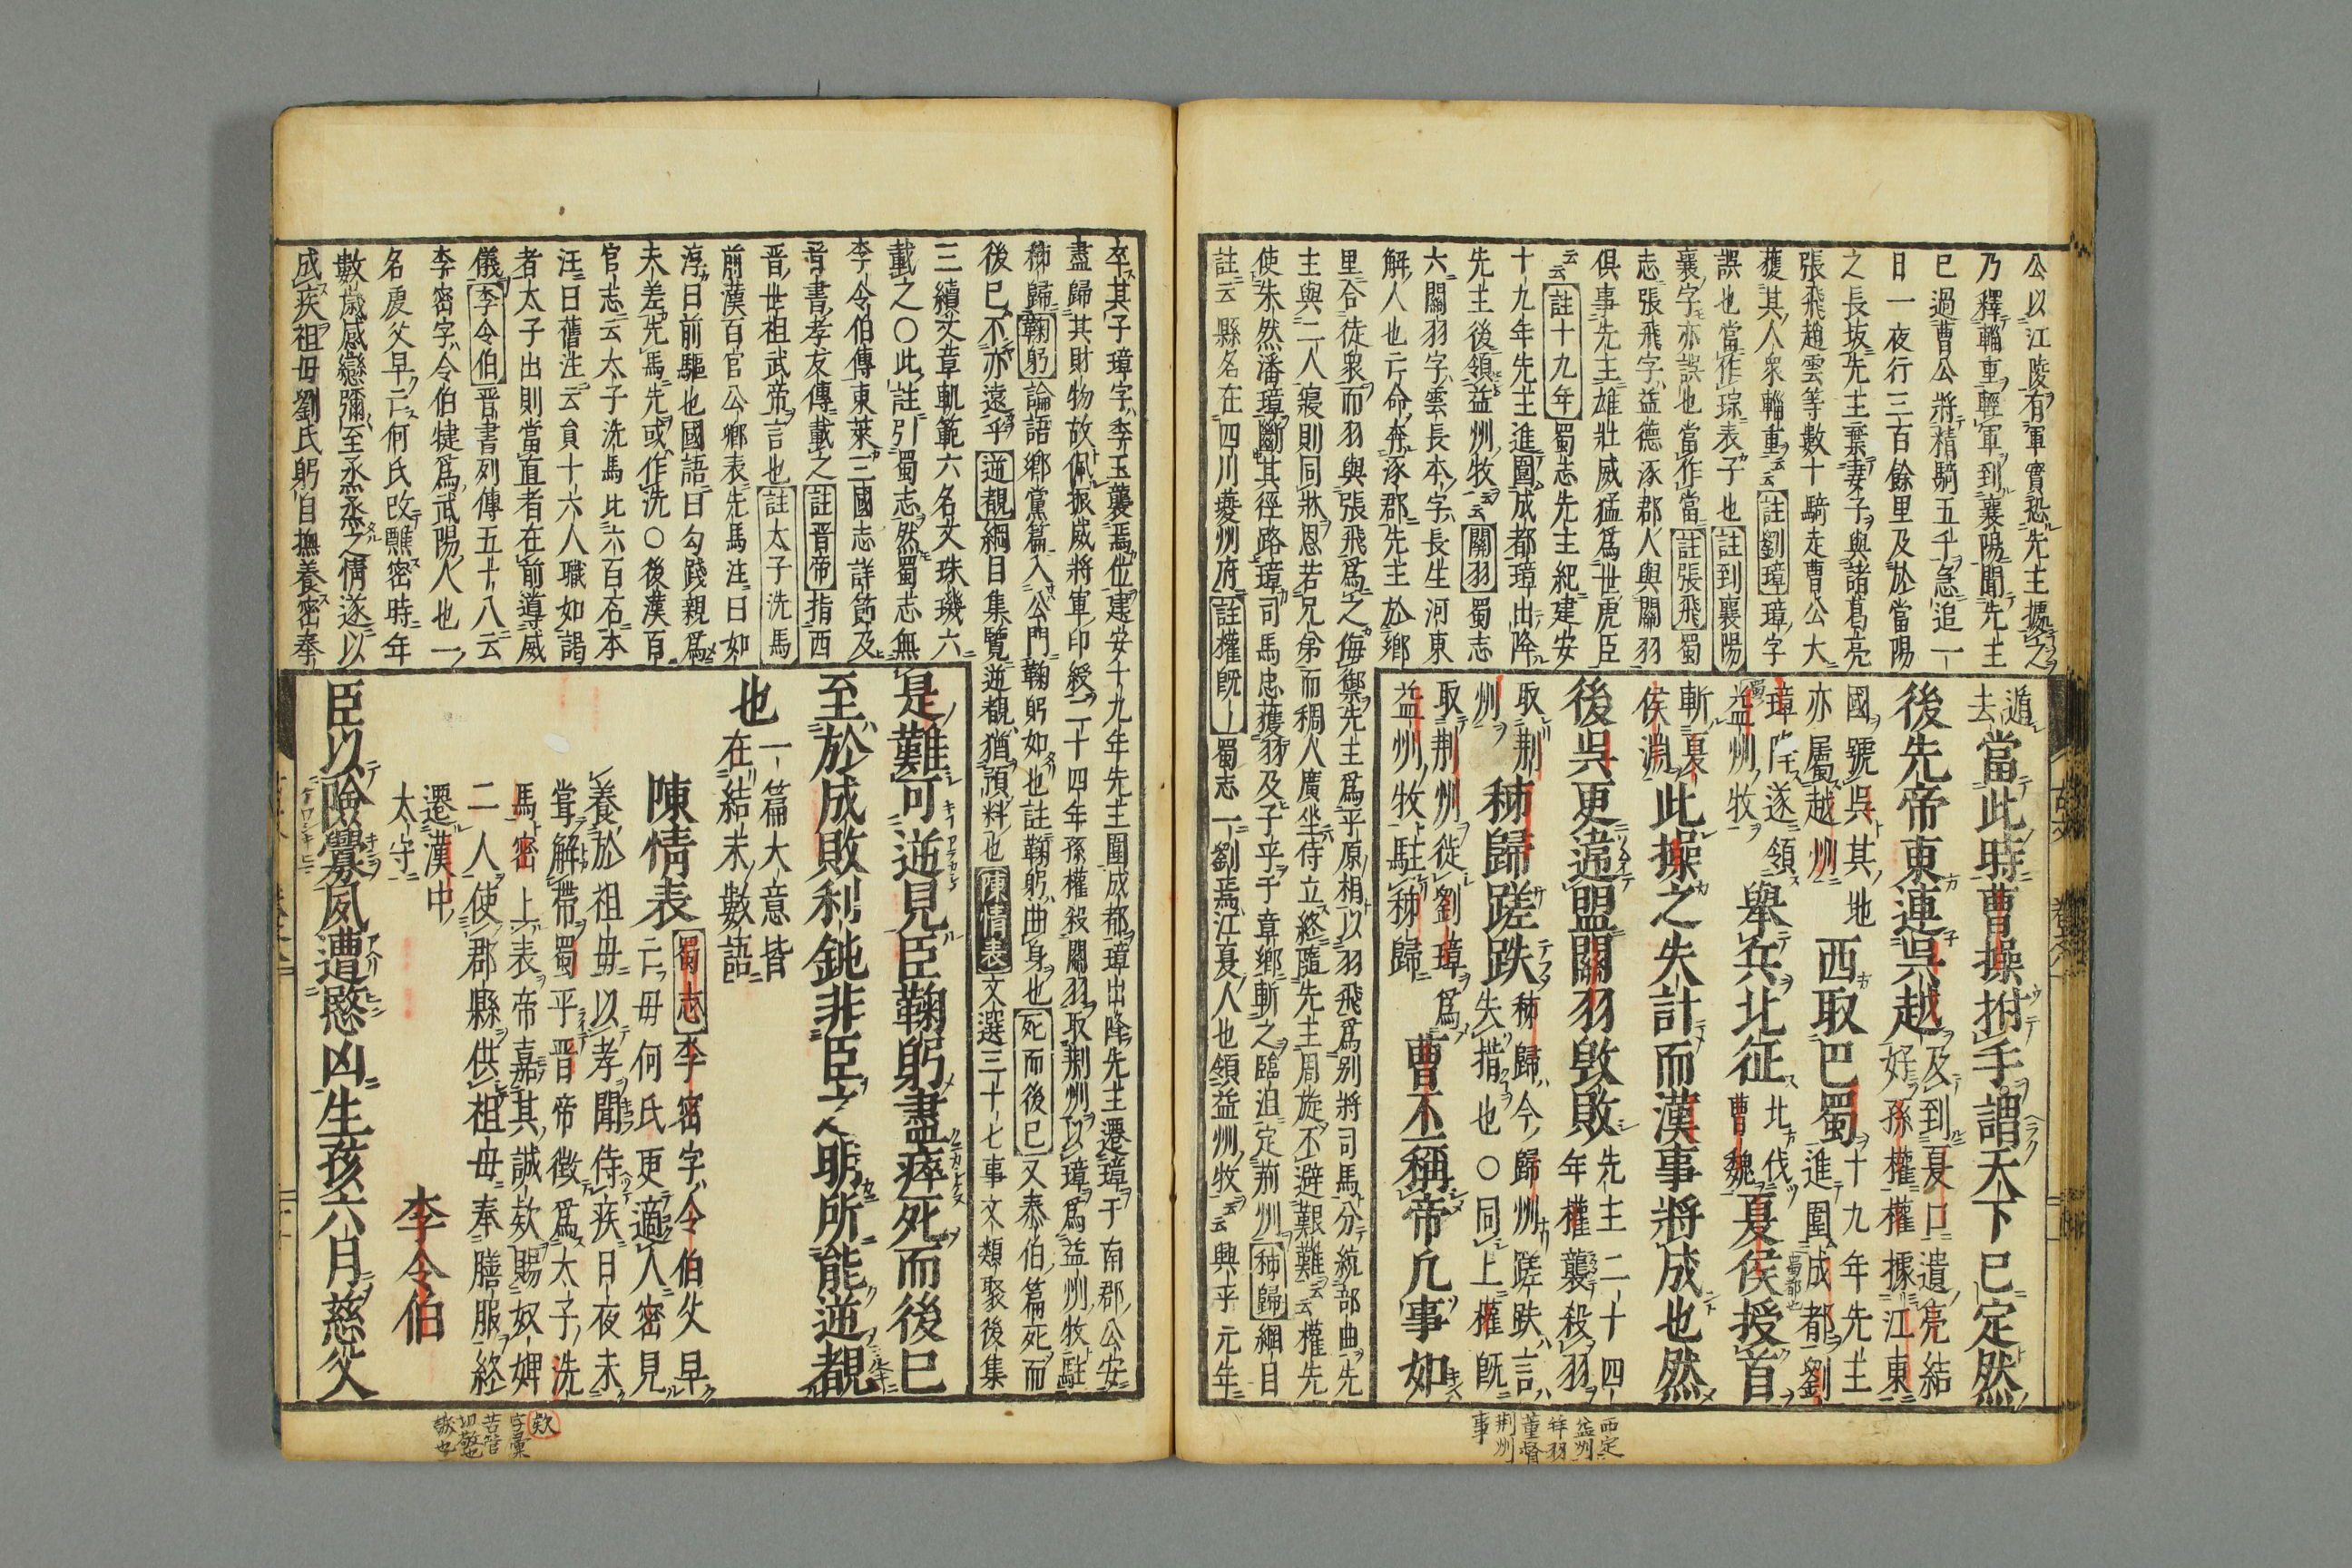 公以江陵有軍實恐先主據之
乃釋輜重輕軍到襄陽聞先主
已過曹公將精騎五千急追一
日一夜行三百餘里及於當陽
之長坂先主棄妻子與諸葛亮
張飛趙雲等數十騎走曹公大
獲其人衆輜重云云註劉璋璋字
誤也當作琮表子也註到襄陽
襄字亦誤也當作當註張飛蜀
志張飛字益德涿郡人與關羽
俱事先主雄壯威猛爲世虎臣
云云註十九年蜀志先主紀建安
十九年先主進圍成都璋出降
先主後領益州牧云云關羽蜀志
六關羽字雲長本字長生河東
解人也亡命奔涿郡先主於鄉
里合徒衆而羽與張飛爲之侮禦先主爲平原相以羽飛爲别將司馬分統部曲先
主與二人寢則同牀恩若兄弟而稠人廣坐侍立終隨先主周旋不避艱難云云權先
使朱然潘璋斷其徑路璋司馬忠獲羽及子平于章鄉斬之臨沮定荊州秭歸綱目
註云縣名在四川夔州府註權既—蜀志一劉焉江夏人也領益州牧云云興平元年
遁
去當此時曹操拊手謂天下已定然
後先帝東連吳越及到夏口遣亮結
好孫權權據江東
國號吳其地
亦屬越州西取巴蜀十九年先主
進圍成都劉
璋降遂領
益州牧舉兵北征北伐
曹魏夏侯授首
斬夏
侯淵此操之失計而漢事將成也然
後吳更違盟關羽毀敗先主二十四
年權襲殺羽
取荆
州秭歸蹉跌秭歸今歸州蹉跌言
失措也○同上權既
取荆州徙劉璋爲
益州牧駐秭歸曹丕稱帝凡事如
西定
益州
拜羽
董督
荆州
事
卒其子璋字季玉襲焉位建安十九年先主圍成都璋出降先主遷璋于南郡公安
盡歸其財物故佩振威將軍印綬二十四年孫權殺關羽取荆州以璋爲益州牧駐
秭歸鞠躬論語鄉黨篇入公門鞠躬如也註鞠躬曲身也死而後已又泰伯篇死而
後已不亦遠乎逆覩綱目集覽逆覩猶預料也陳情表文選三十七事文類聚後集
三續文章軌範六名文珠璣六
載之○此註引蜀志然蜀志無
李令伯傳東萊三國志詳節及
晋書孝友傳載之註晋帝指西
晋世祖武帝言也註太子洗馬
前漢百官公卿表先馬注曰如
淳曰前驅也國語曰勾踐親爲
夫差先馬先或作洗○後漢百
官志云太子洗馬比六百石本
注曰舊注云員十六人職如謁
者太子出則當直者在前導威
儀李令伯晋書列傳五十八云
李密字令伯犍爲武陽人也一
名虔父早亡何氏改醮密時年
數歲感戀彌至烝烝之情遂以
成疾祖母劉氏躬自撫養密奉
是難可逆見臣鞠躬盡瘁死而後已
至於成敗利鈍非臣之明所能逆覩
也一篇大意皆
在結末數語
陳情表蜀志李密字令伯父早
亡母何氏更適人密見
養於祖母以孝聞侍疾日夜未
嘗解帶蜀平晋帝徵爲太子洗
馬密上表帝嘉其誠欵賜奴婢
二人使郡縣供祖母奉膳服終
遷漢中
太守李令伯
臣以險釁夙遭愍凶生孩六月慈父
欵
字彙
苦管
切敬也
誠也